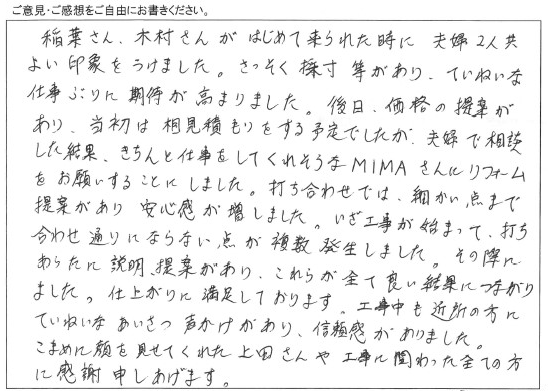 ご意見・ご感想をご自由にお書きください。
稲葉さん、木村さんがはじめて来られた時に夫婦2人共
よい印象をうけました。さっそく採寸等があり、ていねいな
仕事ぶりに期待が高まりました。後日、価格の提案が
あり、当初は相見積もりをする予定でしたが、夫婦で相談
した結果、きちんと仕事をしてくれそうなMIMAさんにリフォーム
をお願いすることにしました。打ち合わせでは、細かい点まで
提案があり安心感が増しました。いざ工事が始まって、打ち
合わせ通りにならない点が複数発生しました。その際に
あらたに説明、提案があり、これらが全て良い結果につながり
ました。仕上がりに満足しております。工事中も近所の方に
ていねいなあいさつ声かけがあり、信頼感がありました。
こまめに顔を見せてくれた上田さんや工事に関わった全ての方
に感謝申しあげます。